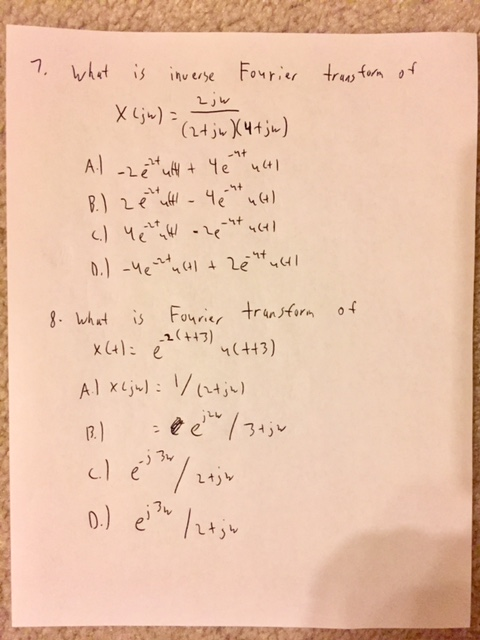 7. What is inverse Fourier transform of
X(jw) = 2jw / (2+jw)(4+jw)
A.) -2e^-2t u(t) + 4e^-4t u(t)
B.) 2e^-2t u(t) - 4e^-4t u(t)
C.) 4e^-2t u(t) - 2e^-4t u(t)
D.) -4e^-2t u(t) + 2e^-4t u(t)
8. What is Fourier transform of
x(t) = e^-2(t+3) u(t+3)
A.) X(jw) = 1/(2+jw)
B.) = e^j2w / 3+jw
C.) e^-j3w / 2+jw
D.) e^j3w / 2+jw